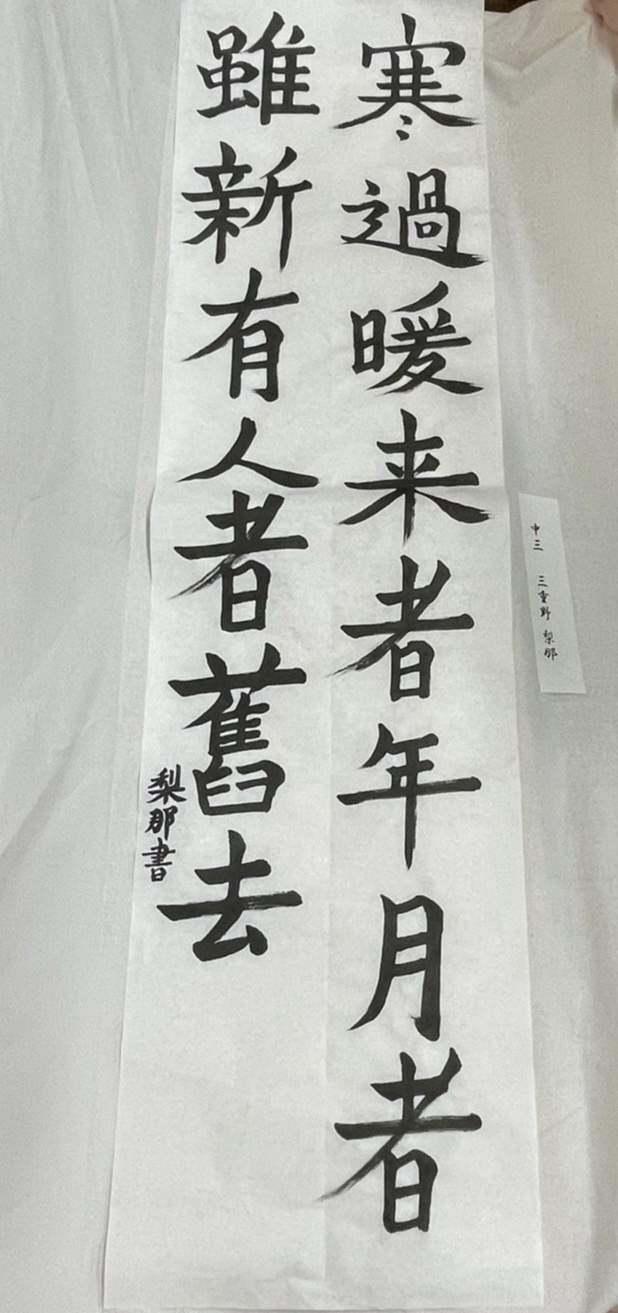 寒過暖来者年月者
雖新有人者舊去
梨那書
中三 三重野 梨那